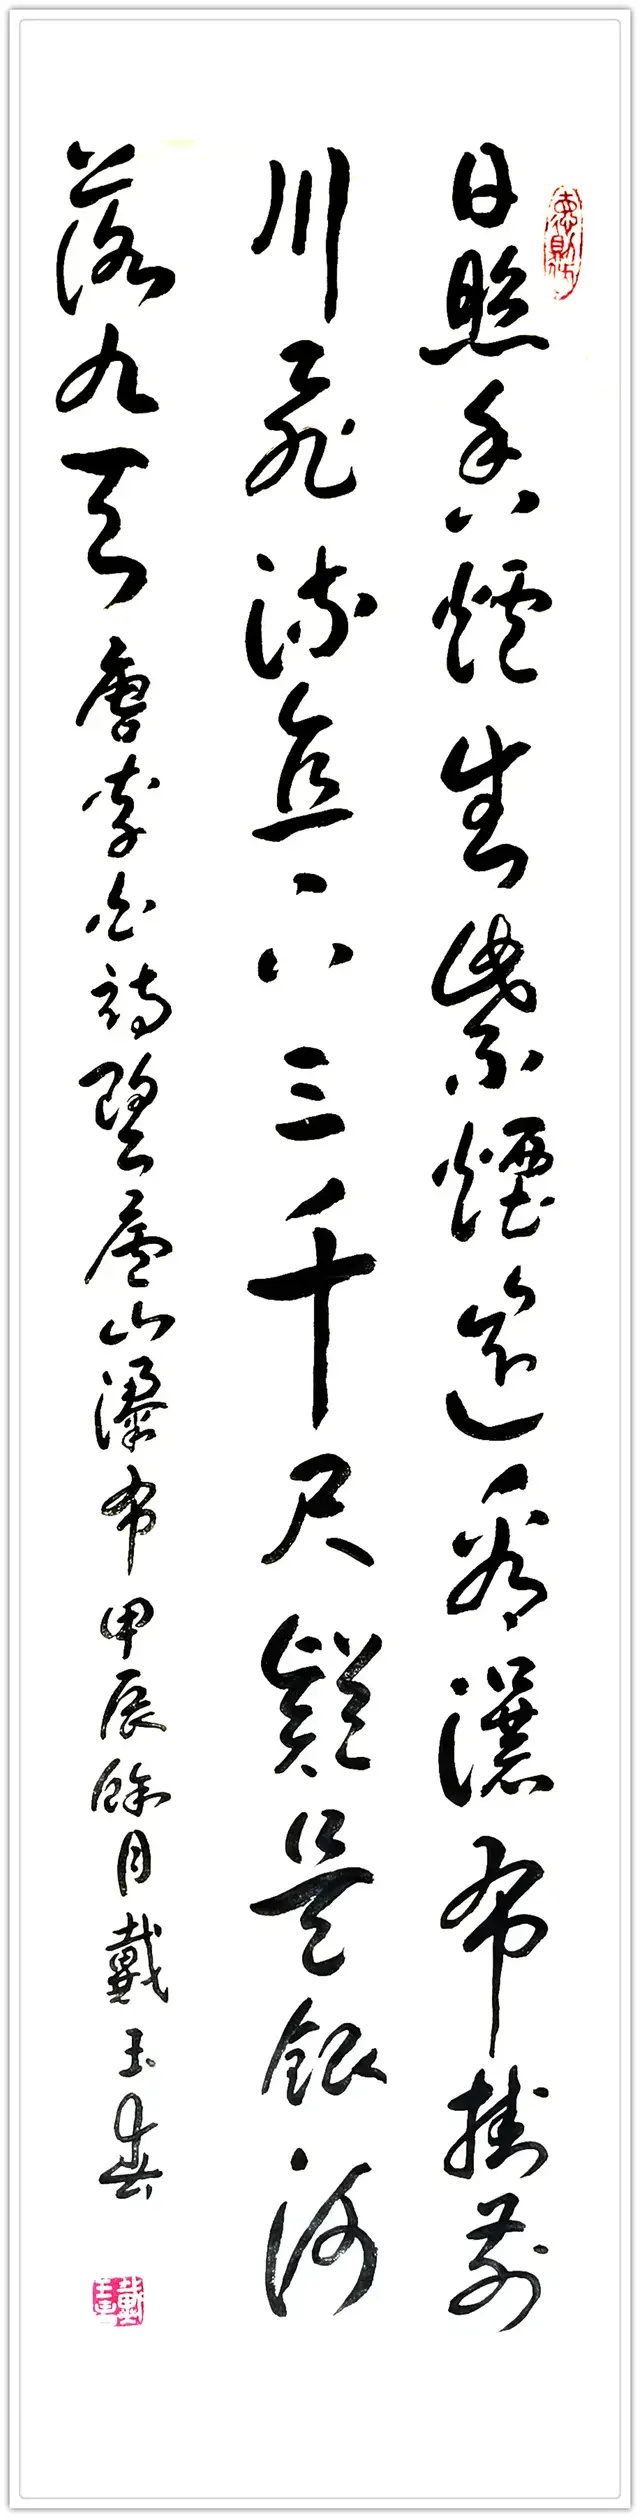 日照香爐生紫煙遙看瀑布掛前
川飛流直下三千尺疑是銀河
落九天 唐李白詩望廬山瀑布 甲辰餘月戴玉